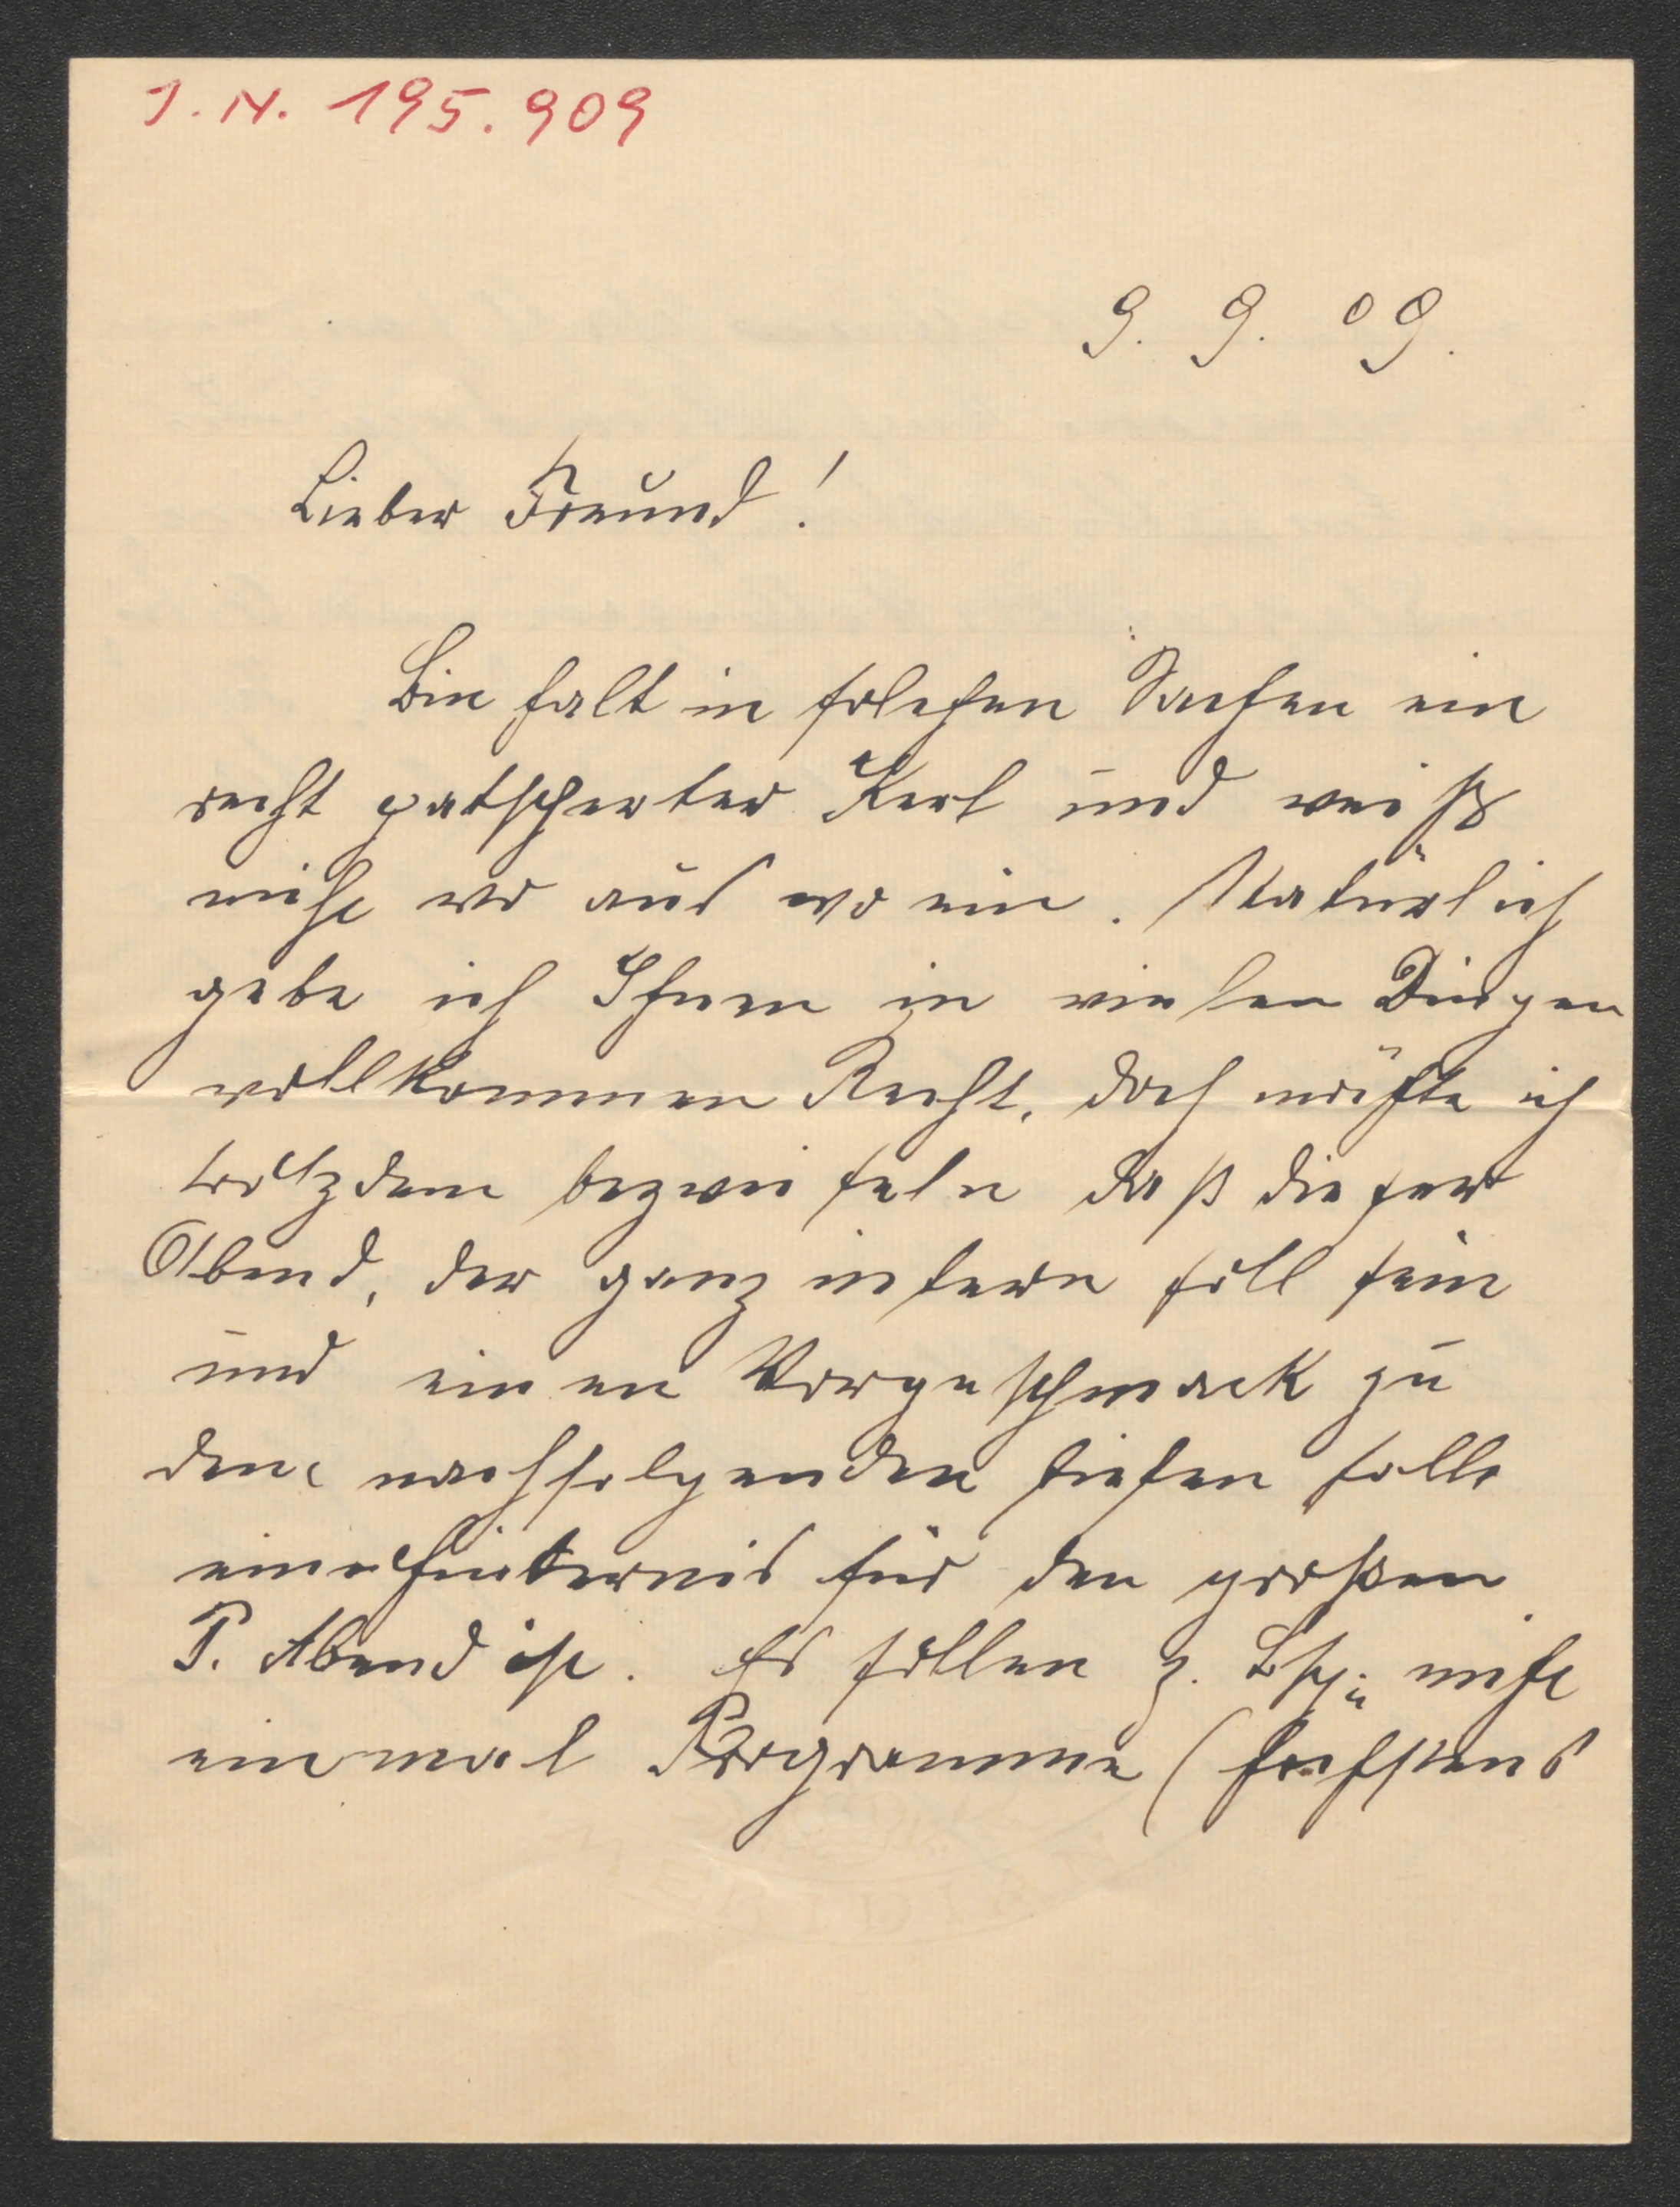 J. N. 195.909
9. 9. 09.
Lieber Freund!
Bin halt in solchen Sachen ein
recht patscherter Kerl und weiß
nicht wo aus wo ein. Natürlich
gebe ich Ihnen in vielen Dingen
vollkommen Recht, doch möchte ich
trotzdem bezweifeln daß dieser
Abend, der ganz intern soll sein
und einen Vorgeschmack zu
den nachfolgenden
ein Hindernis für den großen
P. Abend ist. Es sollen z. Bsp. nicht
einmal Programme (höchstens